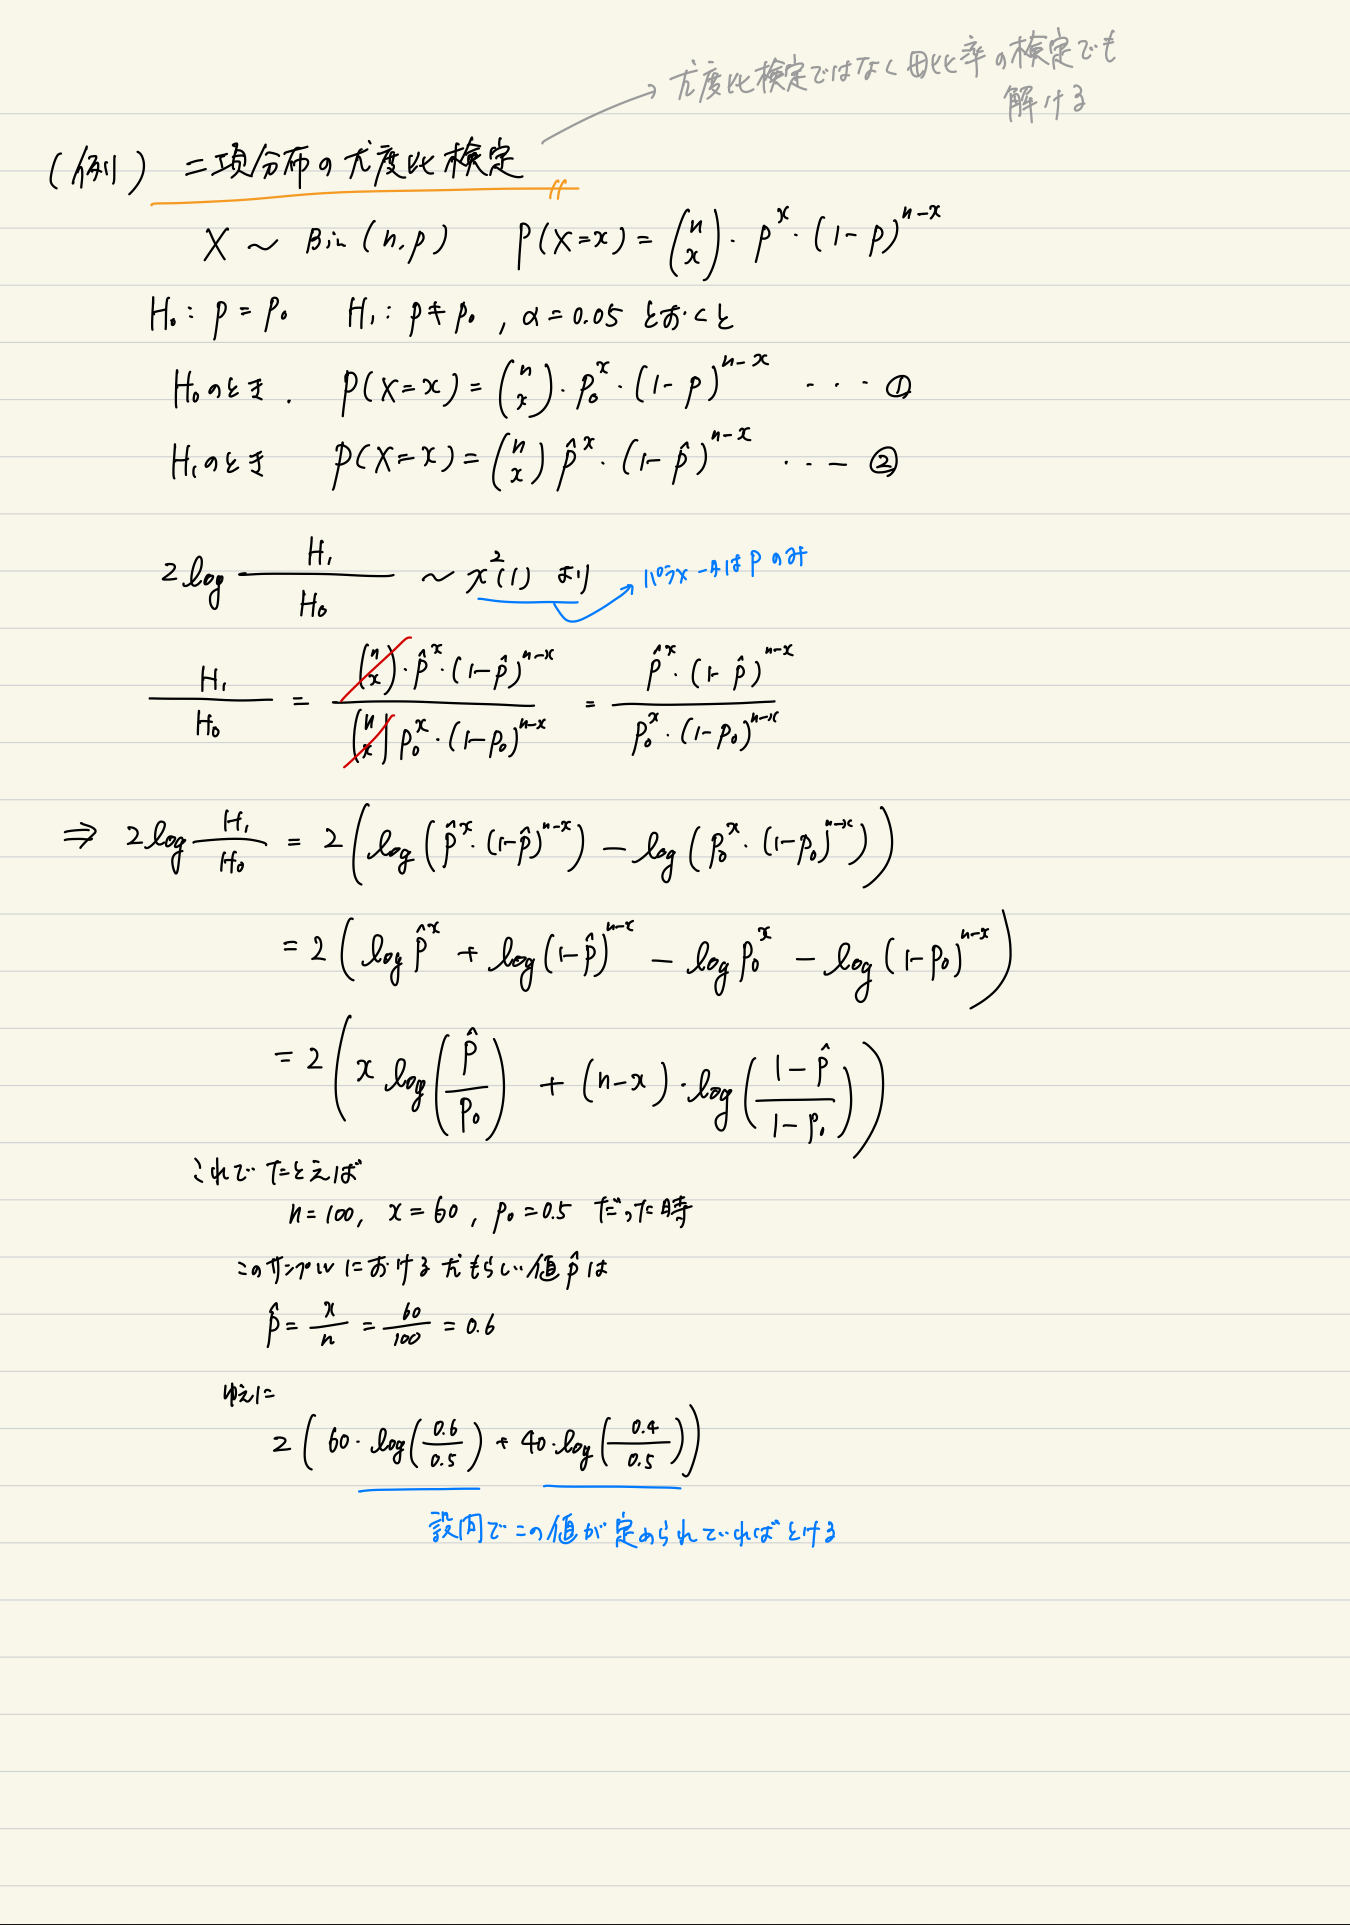 → 尤度比検定ではなく母比率の検定でも
解ける
(例) 二項分布の尤度比検定
X ~ Bin(n, p) P(X=x) = (n x)・p^x・(1-p)^{n-x}
H₀: p = p₀ H₁: p ≠ p₀ , α = 0.05 とおくと
H₀のとき. P(X=x) = (n x)・p₀^x・(1-p)^{n-x} ・・・・ ①
H₁のとき P(X=x) = (n x) p̂^x・(1-p̂)^{n-x} ・・・- ②
2log H₁/H₀ ~ χ²(1) より → パラメータはpのみ
H₁/H₀ = (n x)・p̂^x・(1-p̂)^{n-x} / (n x) p₀^x・(1-p₀)^{n-x} = p̂^x・(1-p̂)^{n-x} / p₀^x・(1-p₀)^{n-x}
⇒ 2log H₁/H₀ = 2(log(p̂^x・(1-p̂)^{n-x}) - log(p₀^x・(1-p₀)^{n-x}))
= 2(log p̂^x + log(1-p̂)^{n-x} - log p₀^x - log(1-p₀)^{n-x})
= 2(x log(p̂/p₀) + (n-x)・log((1-p̂)/(1-p₀)))
これで たとえば
n=100, x=60, p₀=0.5 だった時
このサンプルにおける尤もらしい値p̂は
p̂ = x/n = 60/100 = 0.6
ゆえに
2(60・log(0.6/0.5) + 40・log(0.4/0.5))
設問でこの値が定められていればとける